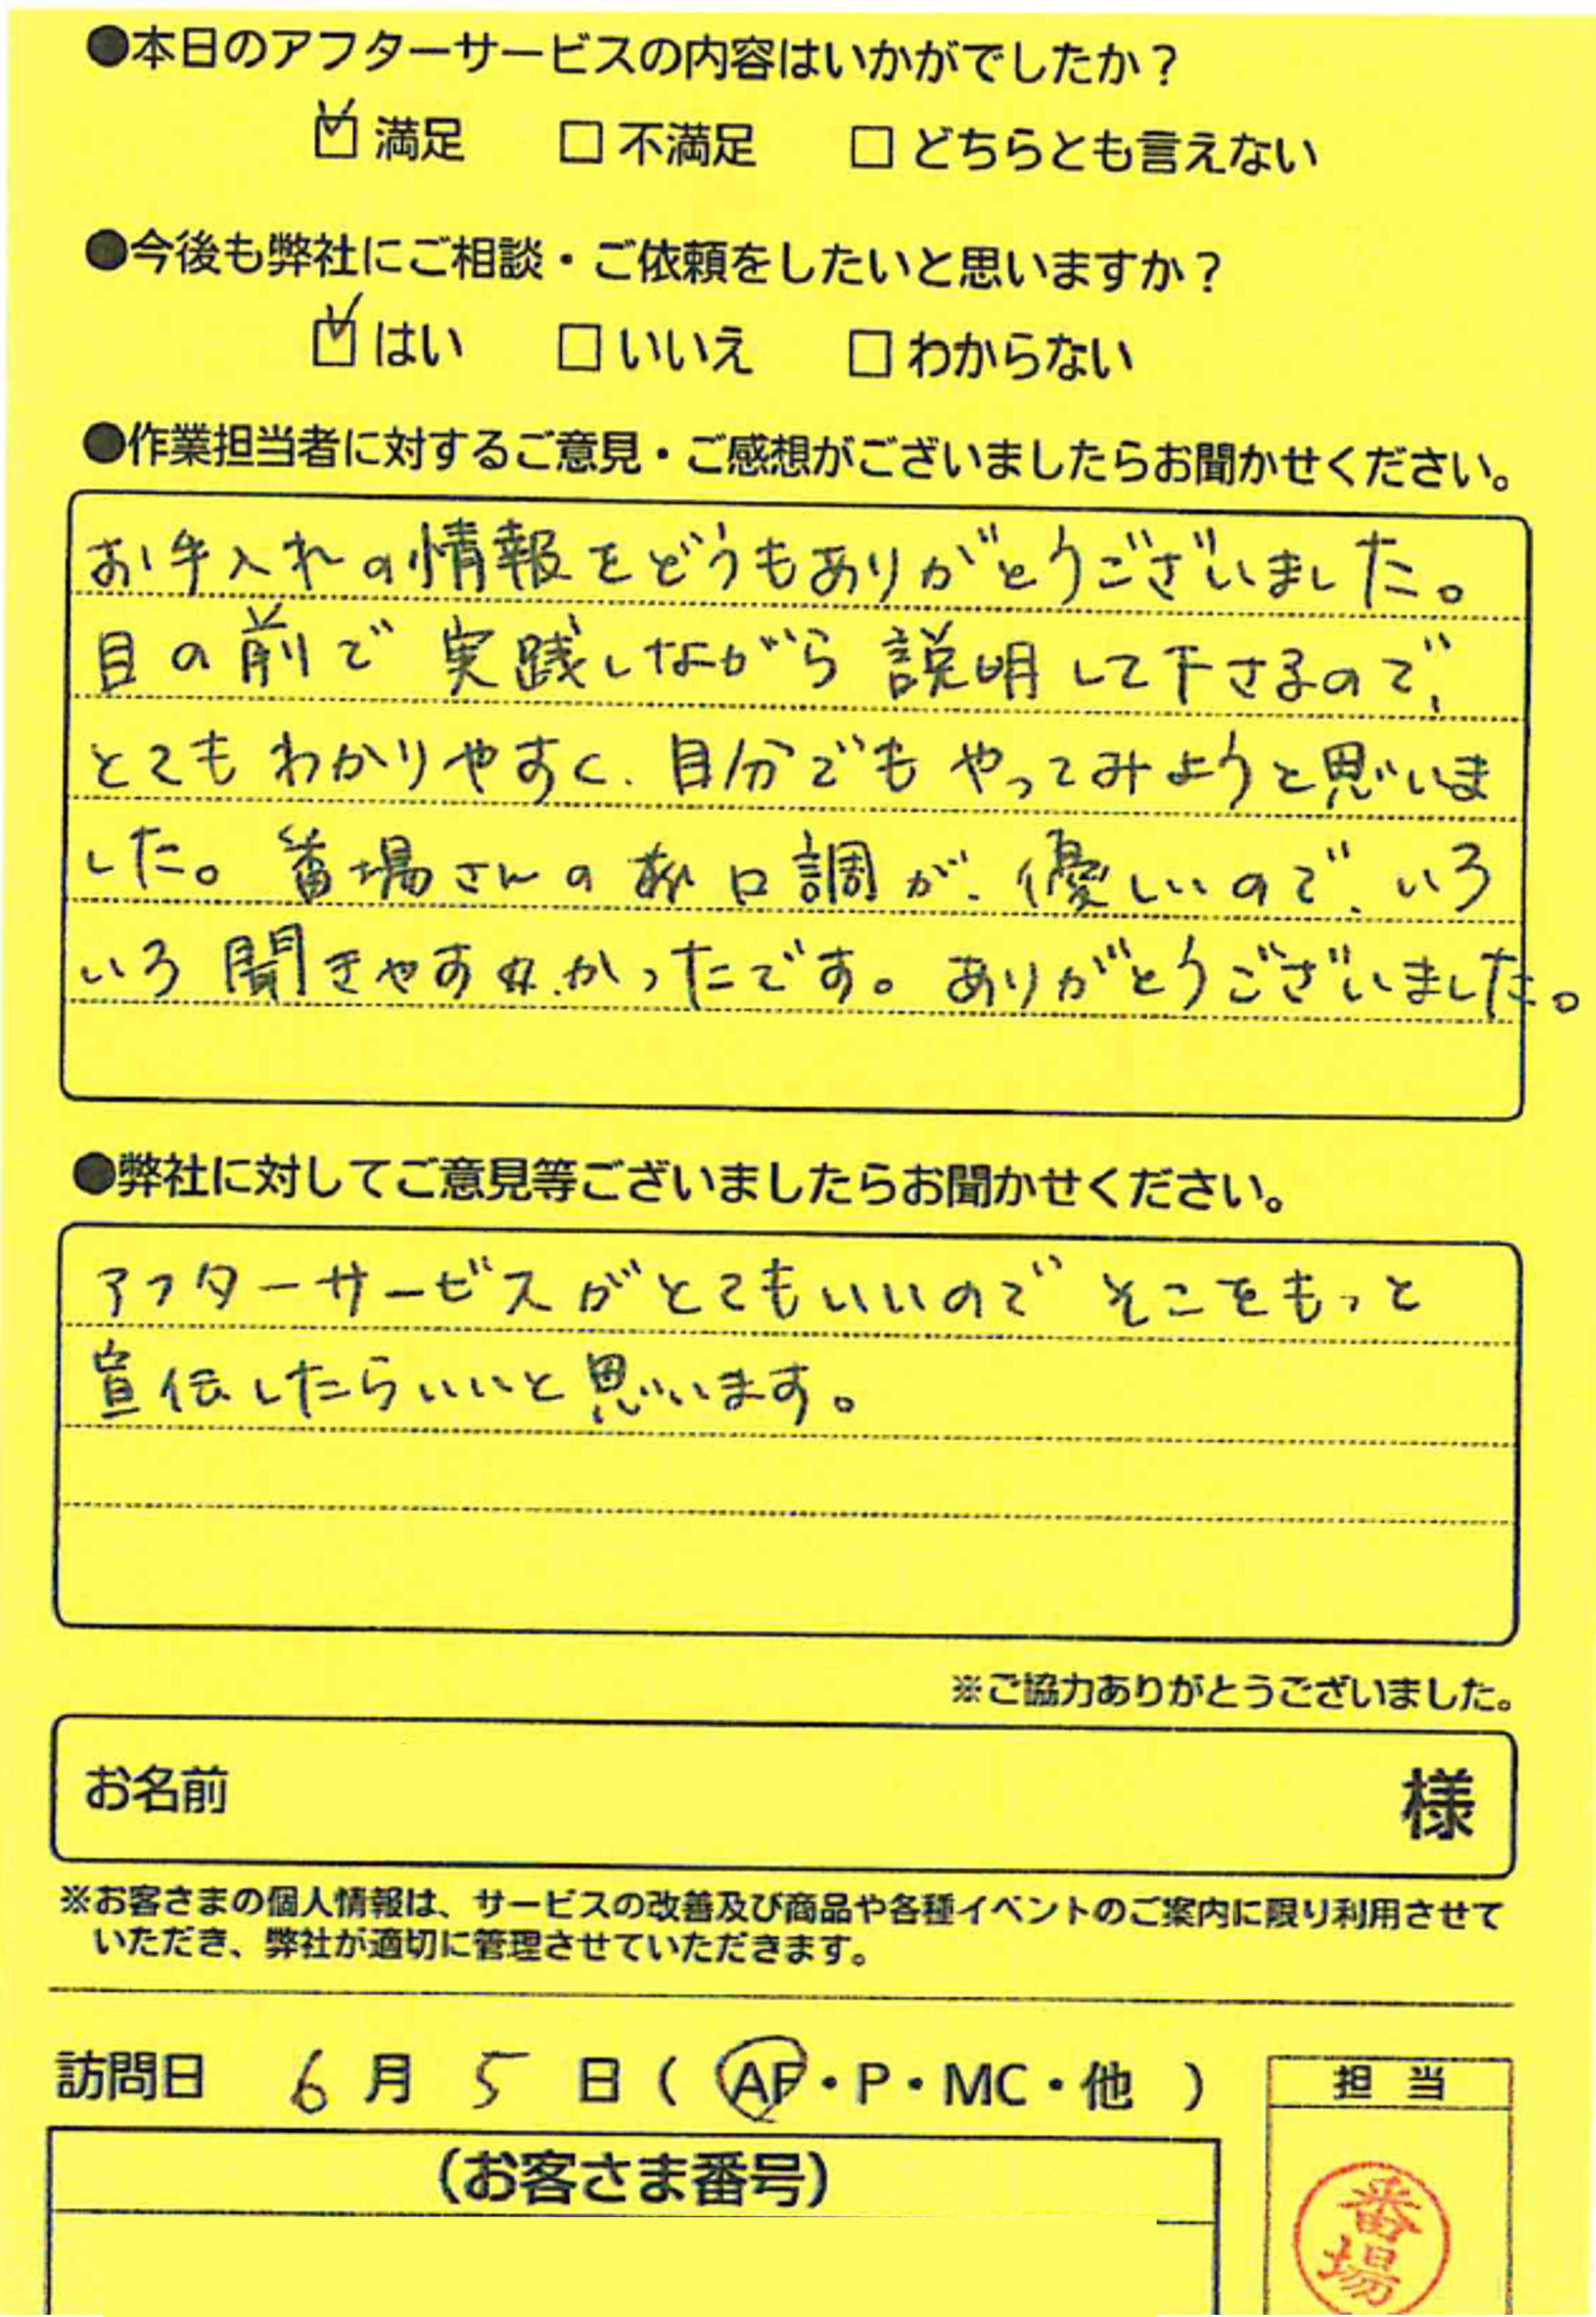 ●本日のアフターサービスの内容はいかがでしたか？
☑満足 □不満足 □どちらとも言えない
●今後も弊社にご相談・ご依頼をしたいと思いますか？
☑はい □いいえ □わからない
●作業担当者に対するご意見・ご感想がございましたらお聞かせください。
お手入れの情報をどうもありがとうございました。
目の前で実践しながら説明して下さるので、
とてもわかりやすく、自分でもやってみようと思いま
した。番場さんの口調が、優しいので、いろ
いろ聞きやすかったです。ありがとうございました。
●弊社に対してご意見等ございましたらお聞かせください。
アフターサービスがとてもいいのでそこをもっと
宣伝したらいいと思います。
※ご協力ありがとうございました。
お名前 様
※お客さまの個人情報は、サービスの改善及び商品や各種イベントのご案内に限り利用させて
いただき、弊社が適切に管理させていただきます。
訪問日 6月5日（AF・P・MC・他）
担当
（お客さま番号）
番場